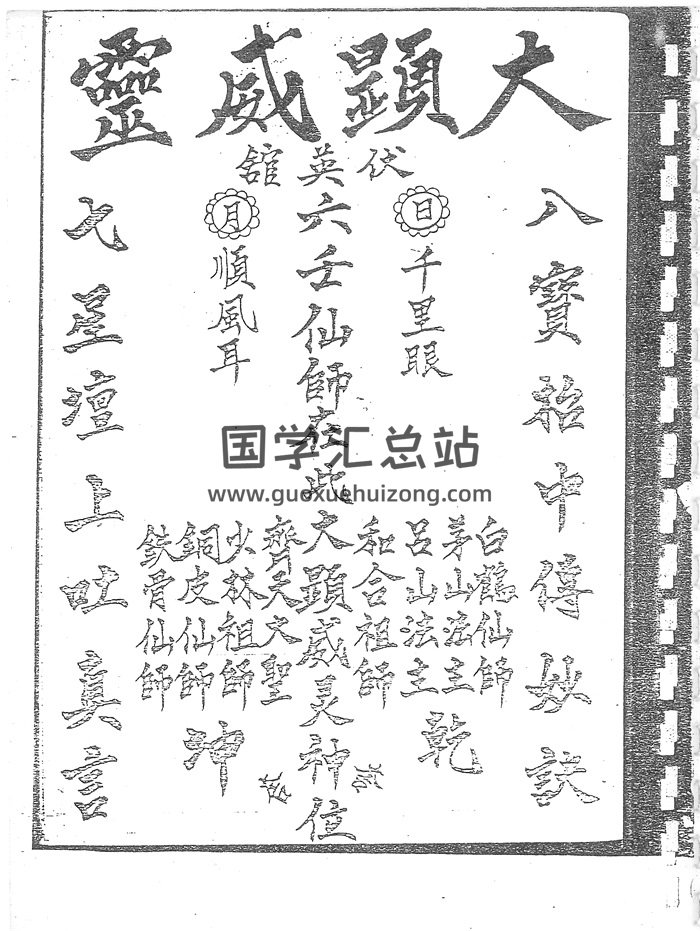 大顯威靈
伏英舘
八寶枱中傳妙訣
日
千里眼
六壬仙師在此大顯威灵神位
月
順風耳
白鶴仙師
茅山法主
呂山法主
和合祖師
齊天大聖
少林祖師
銅皮仙師
鉄骨仙師
乾
坤
七星壇上吐真言
国学汇总站
www.guoxuehuizong.com